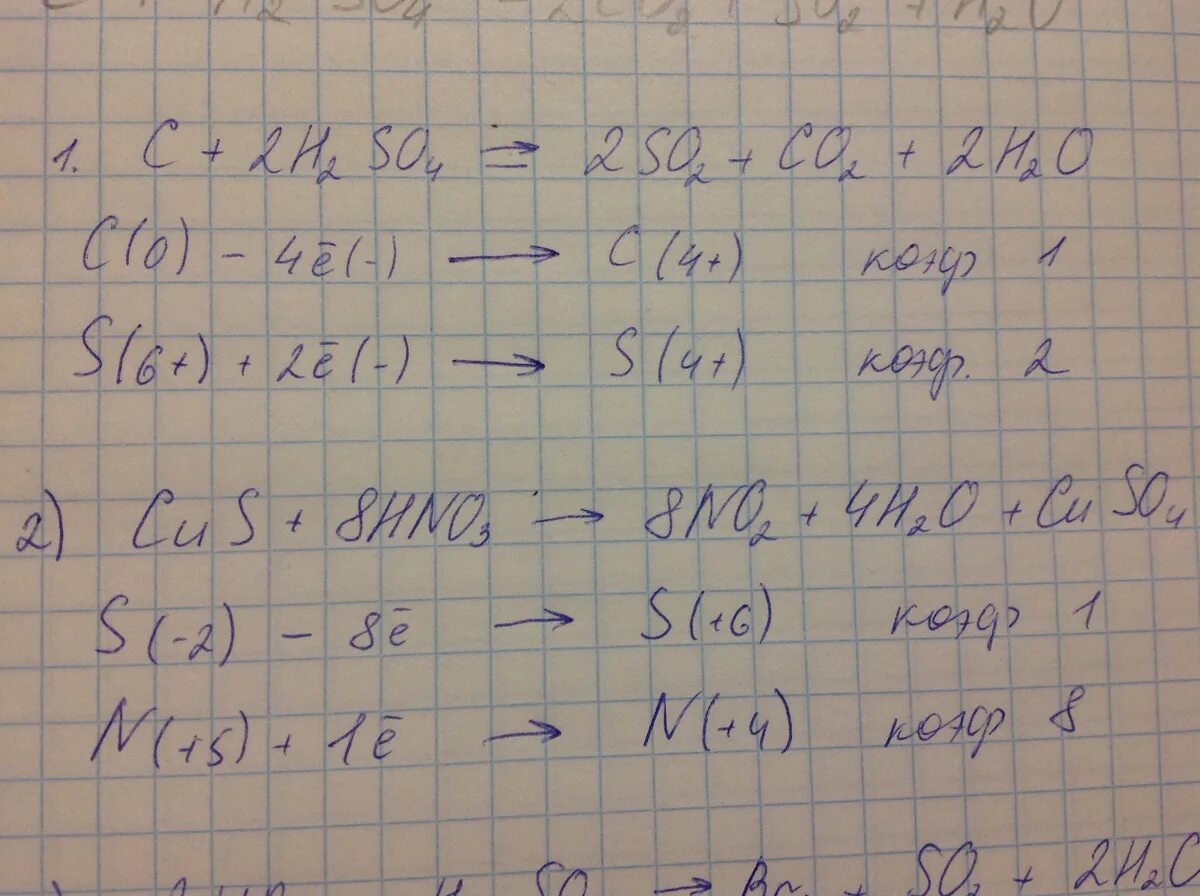 1. C + 2H₂SO₄ ⇒ 2SO₂ + CO₂ + 2H₂O
C(0) - 4ē(-) → C(4+) коэф 1
S(6+) + 2ē(-) → S(4+) коэф. 2
2) CuS + 8HNO₃ → 8NO₂ + 4H₂O + CuSO₄
S(-2) - 8ē → S(+6) коэф 1
N(+5) + 1ē → N(+4) коэф 8
→ + SO₂ + 2H₂O